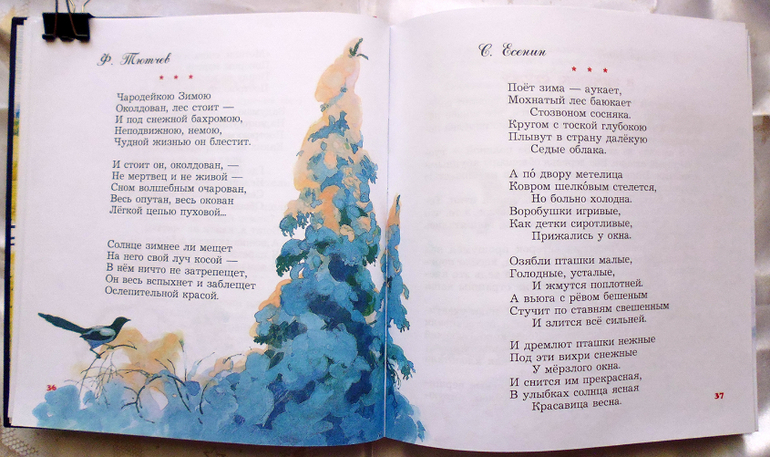 Ф. Тютчев
* * *
Чародейкою Зимою
Околдован, лес стоит —
И под снежной бахромою,
Неподвижною, немою,
Чудной жизнью он блестит.
И стоит он, околдован, —
Не мертвец и не живой —
Сном волшебным очарован,
Весь опутан, весь окован
Лёгкой цепью пуховой...
Солнце зимнее ли мещет
На него свой луч косой —
В нём ничто не затрепещет,
Он весь вспыхнет и заблещет
Ослепительной красой.
36
С. Есенин
* * *
Поёт зима — аукает,
Мохнатый лес баюкает
Стозвоном сосняка.
Кругом с тоской глубокою
Плывут в страну далёкую
Седые облака.
А по́ двору метелица
Ковром шелко́вым стелется,
Но больно холодна.
Воробушки игривые,
Как детки сиротливые,
Прижались у окна.
Озябли пташки малые,
Голодные, усталые,
И жмутся поплотней.
А вьюга с рёвом бешеным
Стучит по ставням свешенным
И злится всё сильней.
И дремлют пташки нежные
Под эти вихри снежные
У мёрзлого окна.
И снится им прекрасная,
В улыбках солнца ясная
Красавица весна.
37